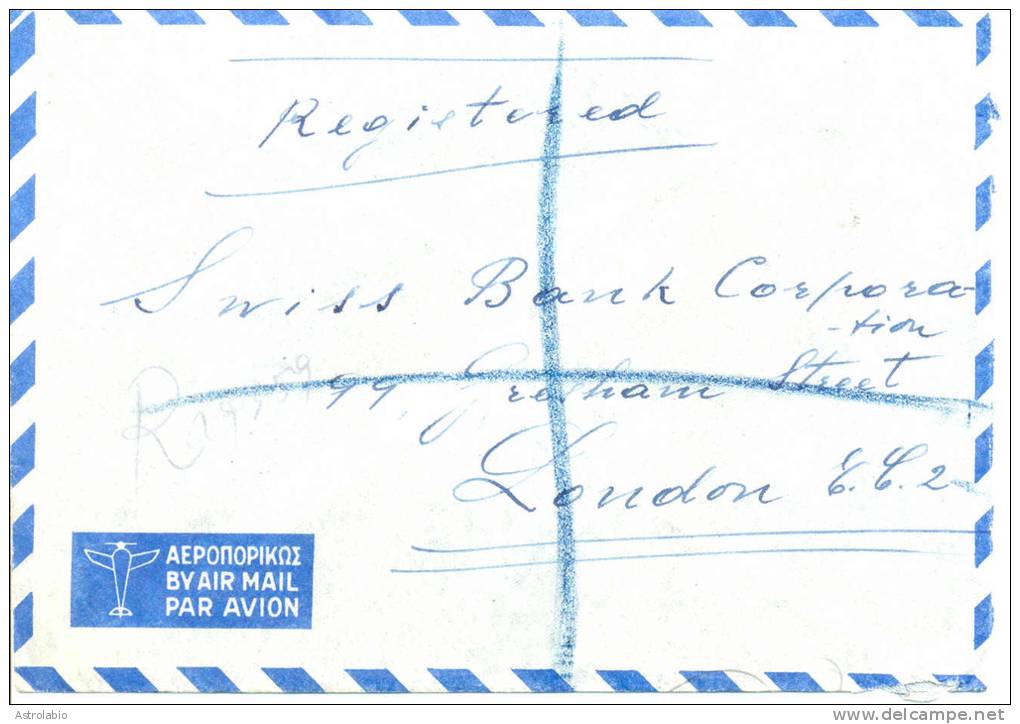 Registered
Swiss Bank Corpora-
-tion
99, Gresham Street
London E.C.2
R
ΑΕΡΟΠΟΡΙΚΩΣ
BY AIR MAIL
PAR AVION
Astrolabio
www.delcampe.net